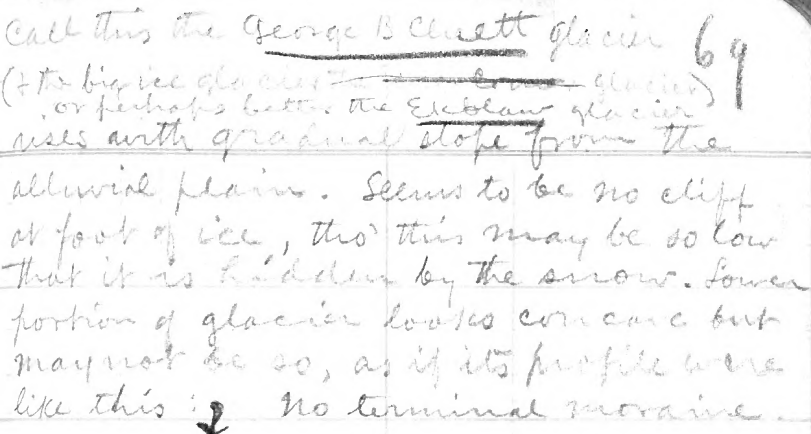 Call this the George B Cluett glacier
69
(& the big ice glacier the glacier)
or perhaps better the Ekblaw glacier
rises with gradual slope from the
alluvial plain. Seems to be no cliff
at foot of ice, tho' this may be so low
that it is hidden by the snow. Lower
portion of glacier looks concave but
may not be so, as if its profile were
like this : No terminal moraine.